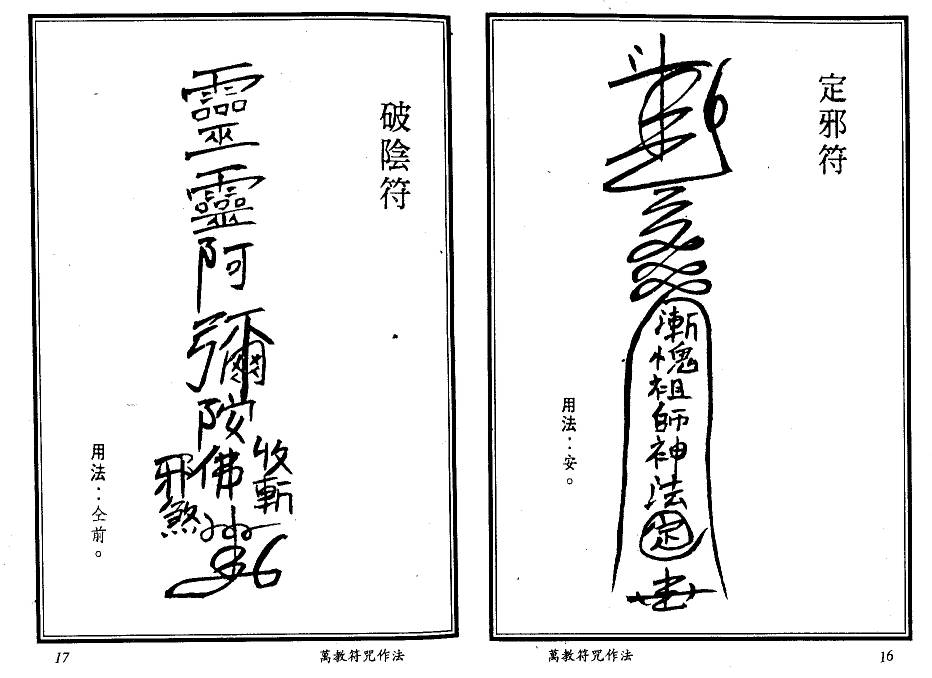 定邪符
漸愧祖師神法
定
用法：安。
萬教符咒作法
16
破陰符
靈靈阿彌陀佛
收斬
邪煞
用法：仝前。
萬教符咒作法
17